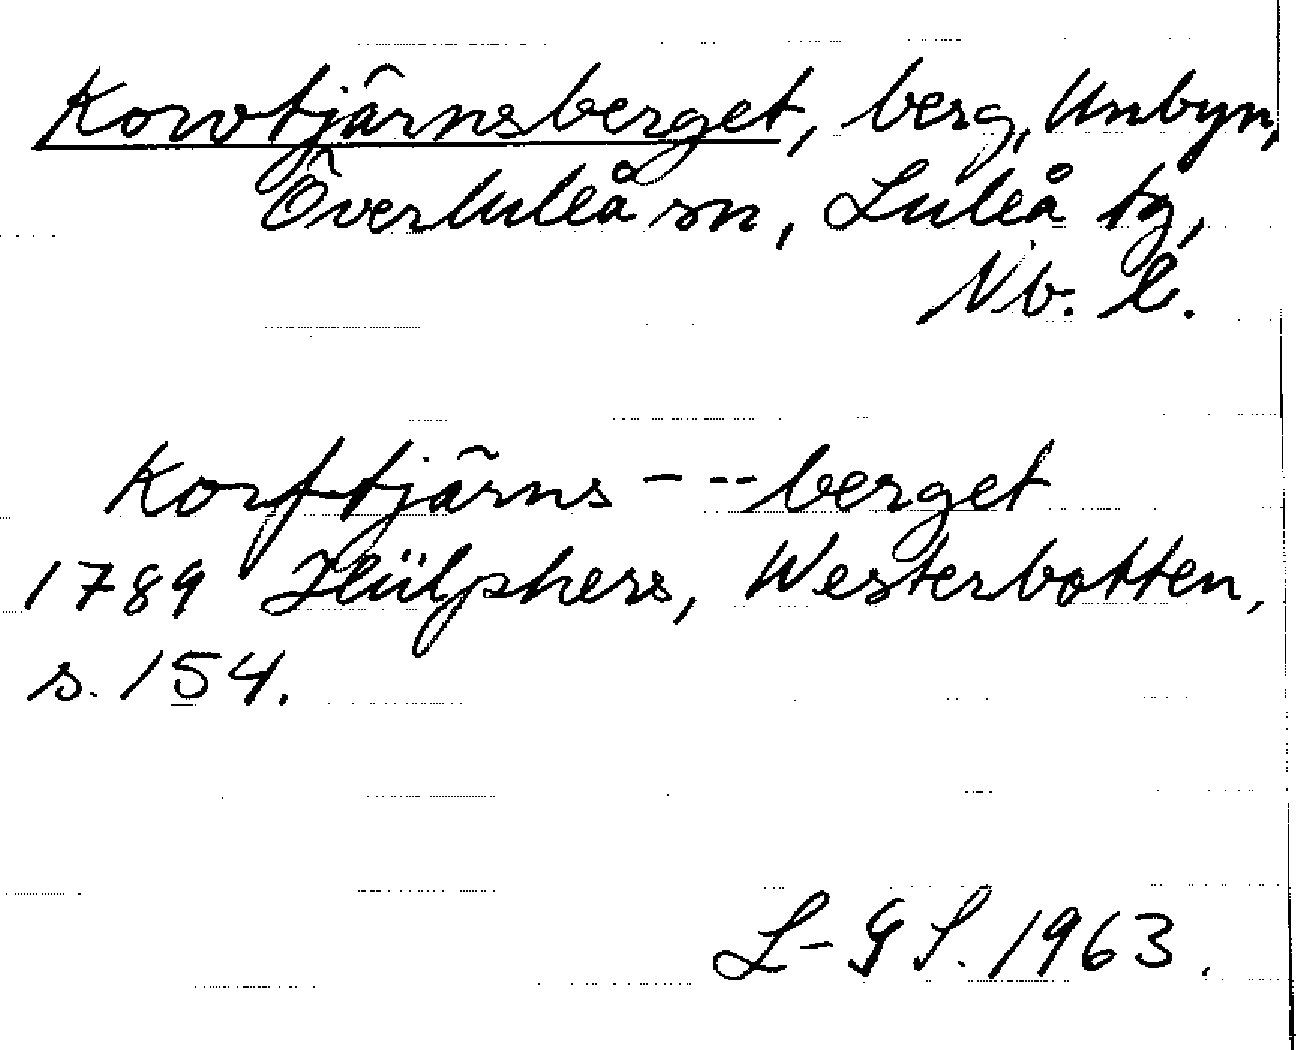 Korvtjärnsberget, berg, Unbyn,
Överluleå sn, Luleå tg,
Nb. l.
Korftjärns - -- berget
1789 Hülphers, Westerbotten,
s. 154.
L-GS. 1963.